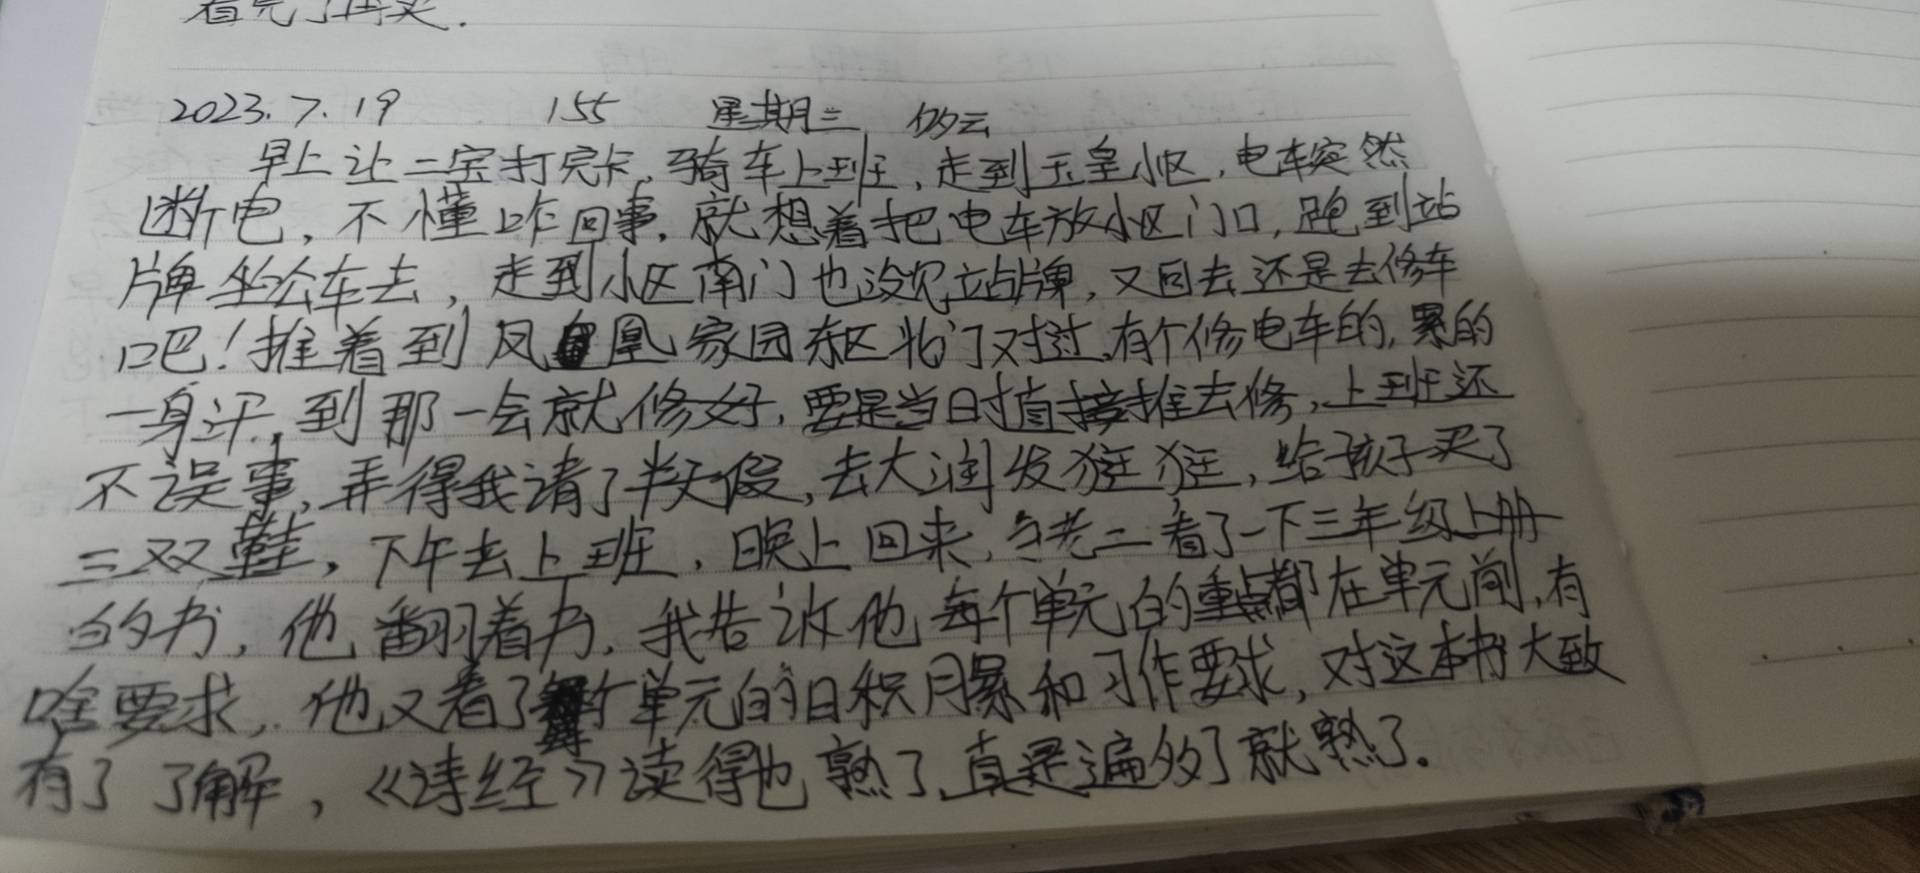 看完了再买.
2023.7.19 155 星期三 多云
早上让二宝打完卡,骑车上班,走到玉皇小区,电车突然
断电,不懂咋回事,就想着把电车放小区门口,跑到站
牌坐公车去,走到小区南门也没见站牌,又回去还是去修车
吧!推着到凤凰家园东区北门对过,有个修电车的,累的
一身汗,到那一会就修好,要是当时直接推去修,上班还
不误事,弄得我请了半天假,去大润发逛逛,给孩子买了
三双鞋,下午去上班,晚上回来,与老二看了一下三年级上册
的书,他翻着书,我告诉他每个单元的重点都在单元前,有
啥要求,他又看了个单元的日积月累和习作要求,对这本书大致
有了了解,《诗经》读得也熟了,真是遍多了就熟了。